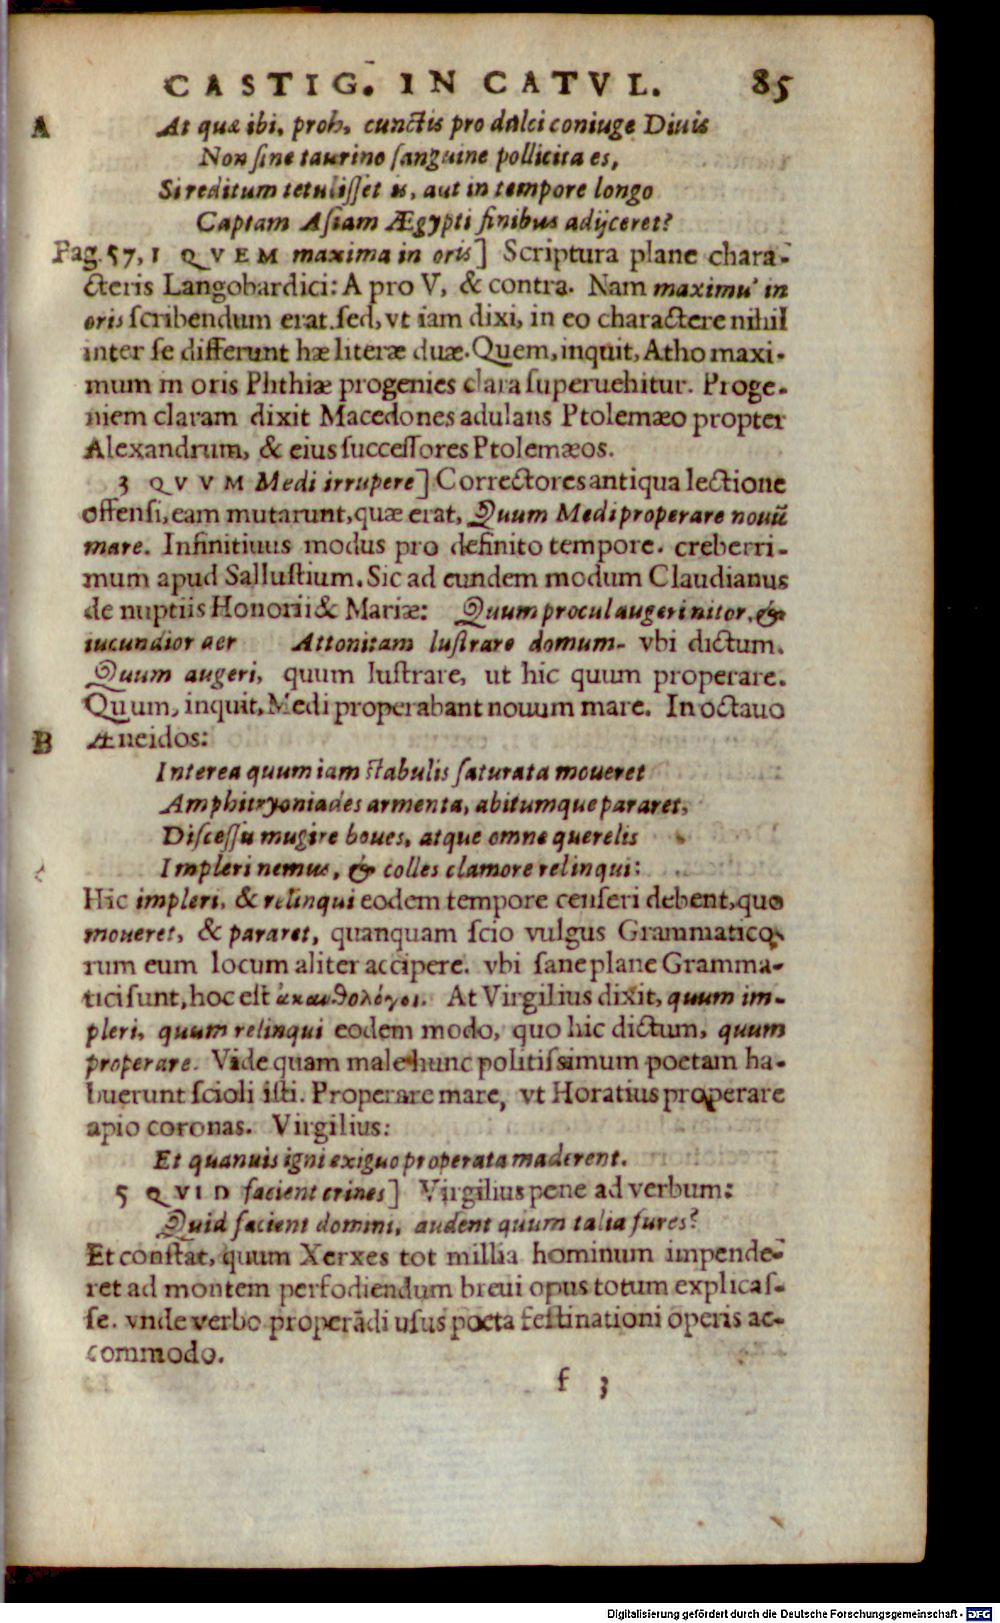 CASTIG. IN CATVL. 85
A At quæ ibi, proh, cunctis pro dulci coniuge Diuis
Non ſine taurino ſanguine pollicita es,
Si reditum tetuliſſet is, aut in tempore longo
Captam Aſiam Ægypti finibus adijceret?
Pag. 57, 1 QVEM maxima in oris] Scriptura plane chara-
cteris Langobardici: A pro V, & contra. Nam maximu' in
oris scribendum erat. sed, vt iam dixi, in eo charactere nihil
inter ſe differunt hæ literæ duæ. Quem, inquit, Atho maxi-
mum in oris Phthiæ progenies clara ſuperuehitur. Proge-
niem claram dixit Macedones adulans Ptolemæo propter
Alexandrum, & eius ſucceſſores Ptolemæos.
3 QVVM Medi irrupere] Correctores antiqua lectione
offenſi, eam mutarunt, quæ erat, Quum Medi properare nouū
mare. Infinitiuus modus pro definito tempore. creberri-
mum apud Salluſtium. Sic ad eundem modum Claudianus
de nuptiis Honorii & Mariæ: Quum procul augeri nitor, &
iucundior aer Attonitam luſtrare domum- vbi dictum.
Quum augeri, quum luſtrare, ut hic quum properare.
Quum, inquit, Medi properabant nouum mare. In octauo
B Æneidos:
Interea quum iam ſtabulis ſaturata moueret
Amphitryoniades armenta, abitumque pararet,
Diſceſſu mugire boues, atque omne querelis
Impleri nemus, & colles clamore relinqui:
Hic impleri, & relinqui eodem tempore cenſeri debent, quo
moueret, & pararet, quanquam ſcio vulgus Grammatico-
rum eum locum aliter accipere. vbi ſane plane Gramma-
tici ſunt, hoc eſt ἀκανθολόγοι. At Virgilius dixit, quum im-
pleri, quum relinqui eodem modo, quo hic dictum, quum
properare. Vide quam male hunc politiſsimum poetam ha-
buerunt ſcioli iſti. Properare mare, vt Horatius properare
apio coronas. Virgilius:
Et quanuis igni exiguo properata maderent.
5 QVID facient crines] Virgilius pene ad verbum:
Quid facient domini, audent quum talia fures?
Et conſtat, quum Xerxes tot millia hominum impende-
ret ad montem perfodiendum breui opus totum explicaſ-
ſe. vnde verbo properādi uſus poeta feſtinationi operis ac-
commodo.
f 3
Digitalisierung gefördert durch die Deutsche Forschungsgemeinschaft - DFG